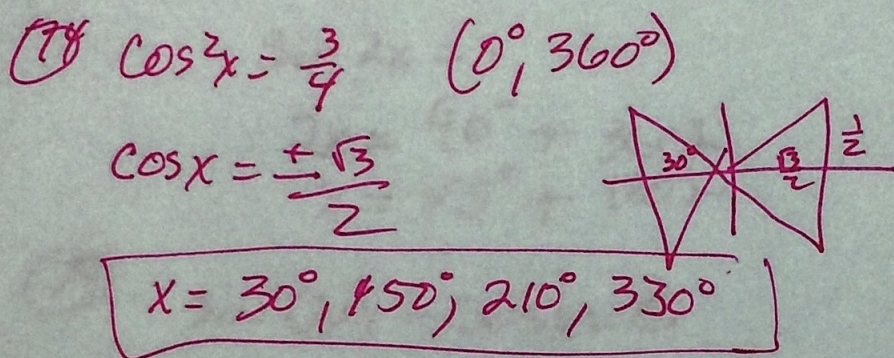 78 cos²x = 3/4 (0°, 360°)
cos x = ±√3/2
30° √3/2 1/2
x = 30°, 150°, 210°, 330°